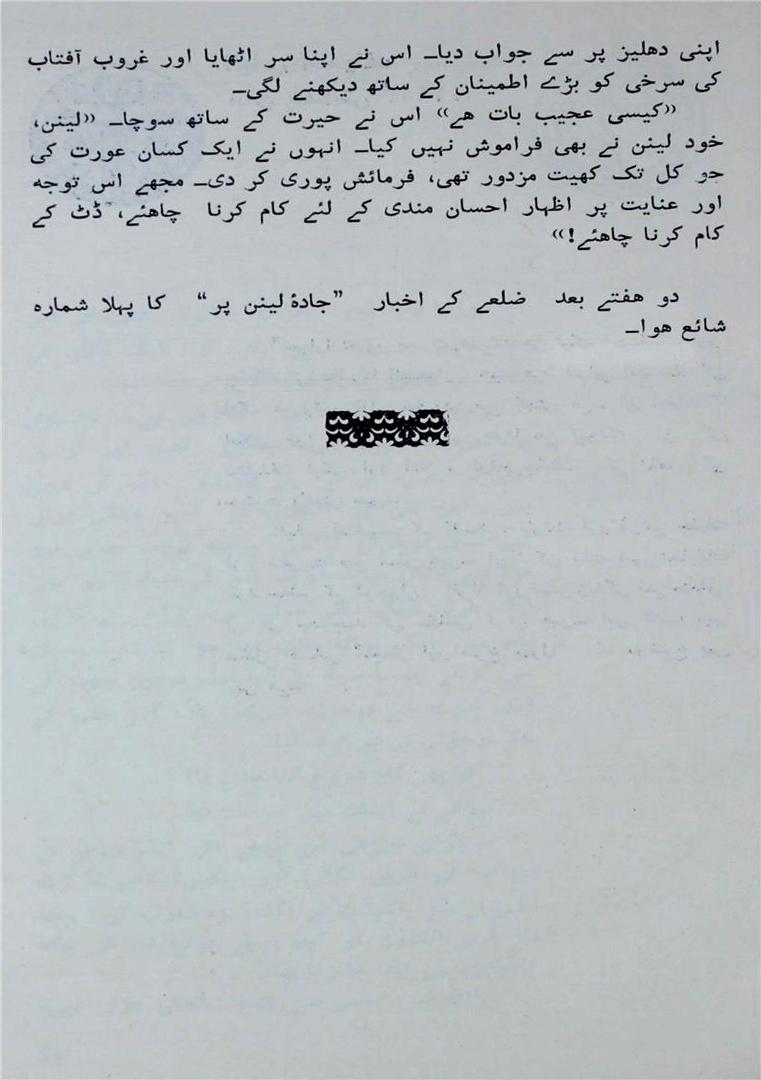 اپنی دهلیز پر سے جواب دیا۔ اس نے اپنا سر اٹھایا اور غروب آفتاب
کی سرخی کو بڑے اطمینان کے ساتھ دیکھنے لگی۔
«کیسی عجیب بات هے» اس نے حیرت کے ساتھ سوچا۔ «لینن،
خود لینن نے بھی فراموش نہیں کیا۔ انہوں نے ایک کسان عورت کی
جو کل تک کھیت مزدور تھی، فرمائش پوری کر دی۔ مجھے اس توجہ
اور عنایت پر اظہار احسان مندی کے لئے کام کرنا چاهئے، ڈٹ کے
کام کرنا چاهئے!»
دو هفتے بعد ضلعے کے اخبار ”جادۂ لینن پر“ کا پہلا شمارہ
شائع هوا۔